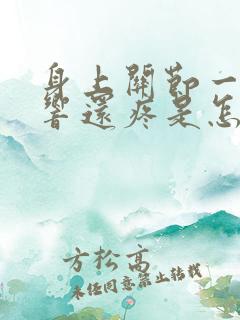 身上關節一
響還疼是怎
方松高
未经同意禁止转载